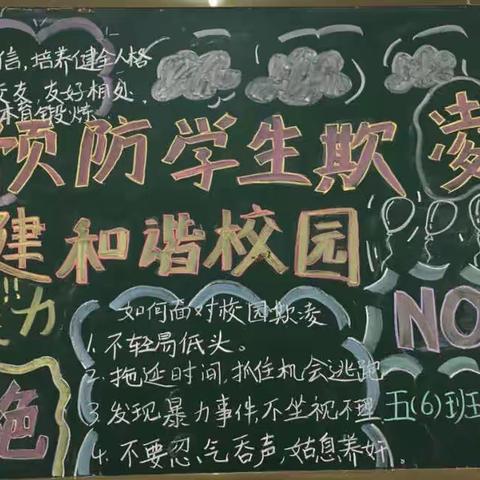 信,培养健全人格
交友,友好相处,
体育锻炼
预防学生欺凌
建和谐校园
!!
力
NO
如何面对校园欺凌
1.不轻易低头。
2.拖延时间,抓住机会逃跑
3.发现暴力事件,不坐视不理
4.不要忍气吞声,姑息养奸。
五(6)班
绝